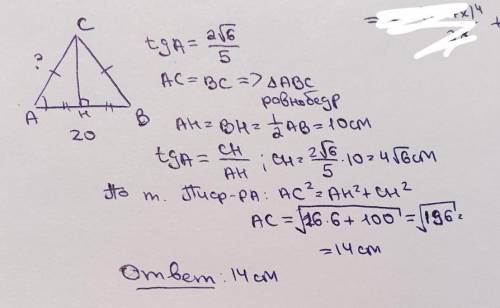 C
tgA = 2√6/5
?
AC = BC => △ABC
равнобедр
A H B
20
AH = BH = 1/2 AB = 10см
tgA = CH/AH ; CH = 2√6/5 · 10 = 4√6см
По т. Пиф-ра: AC² = AH² + CH²
AC = √16·6 + 100 = √196 =
= 14 см
Ответ: 14 см